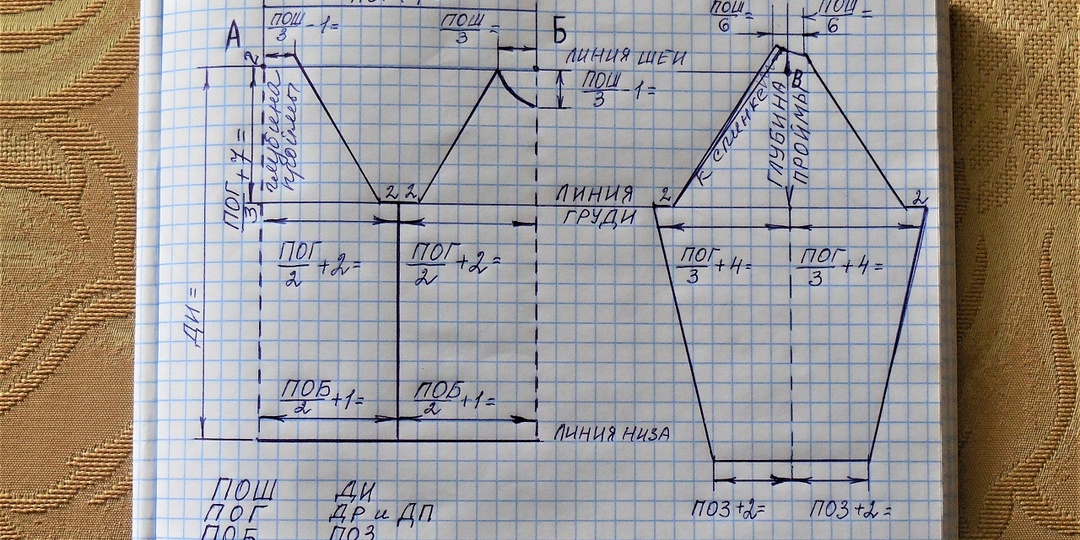 ПОШ/3 - 1 =
ПОШ/3 =
ПОШ/6 =
ПОШ/6 =
А
Б
2
ЛИНИЯ ШЕИ
ПОШ/3 - 1 =
В
ПОГ/3 + 7 =
глубина
проймы
К спинке
ГЛУБИНА
ПРОЙМЫ
2 2
ЛИНИЯ
ГРУДИ
2
2
ПОГ/2 + 2 =
ПОГ/2 + 2 =
ПОГ/3 + 4 =
ПОГ/3 + 4 =
ДИ =
ПОБ/2 + 1 =
ПОБ/2 + 1 =
ЛИНИЯ НИЗА
ПОШ ДИ
ПОГ ДР и ДП
ПОБ ПОЗ
ПОЗ + 2 =
ПОЗ + 2 =